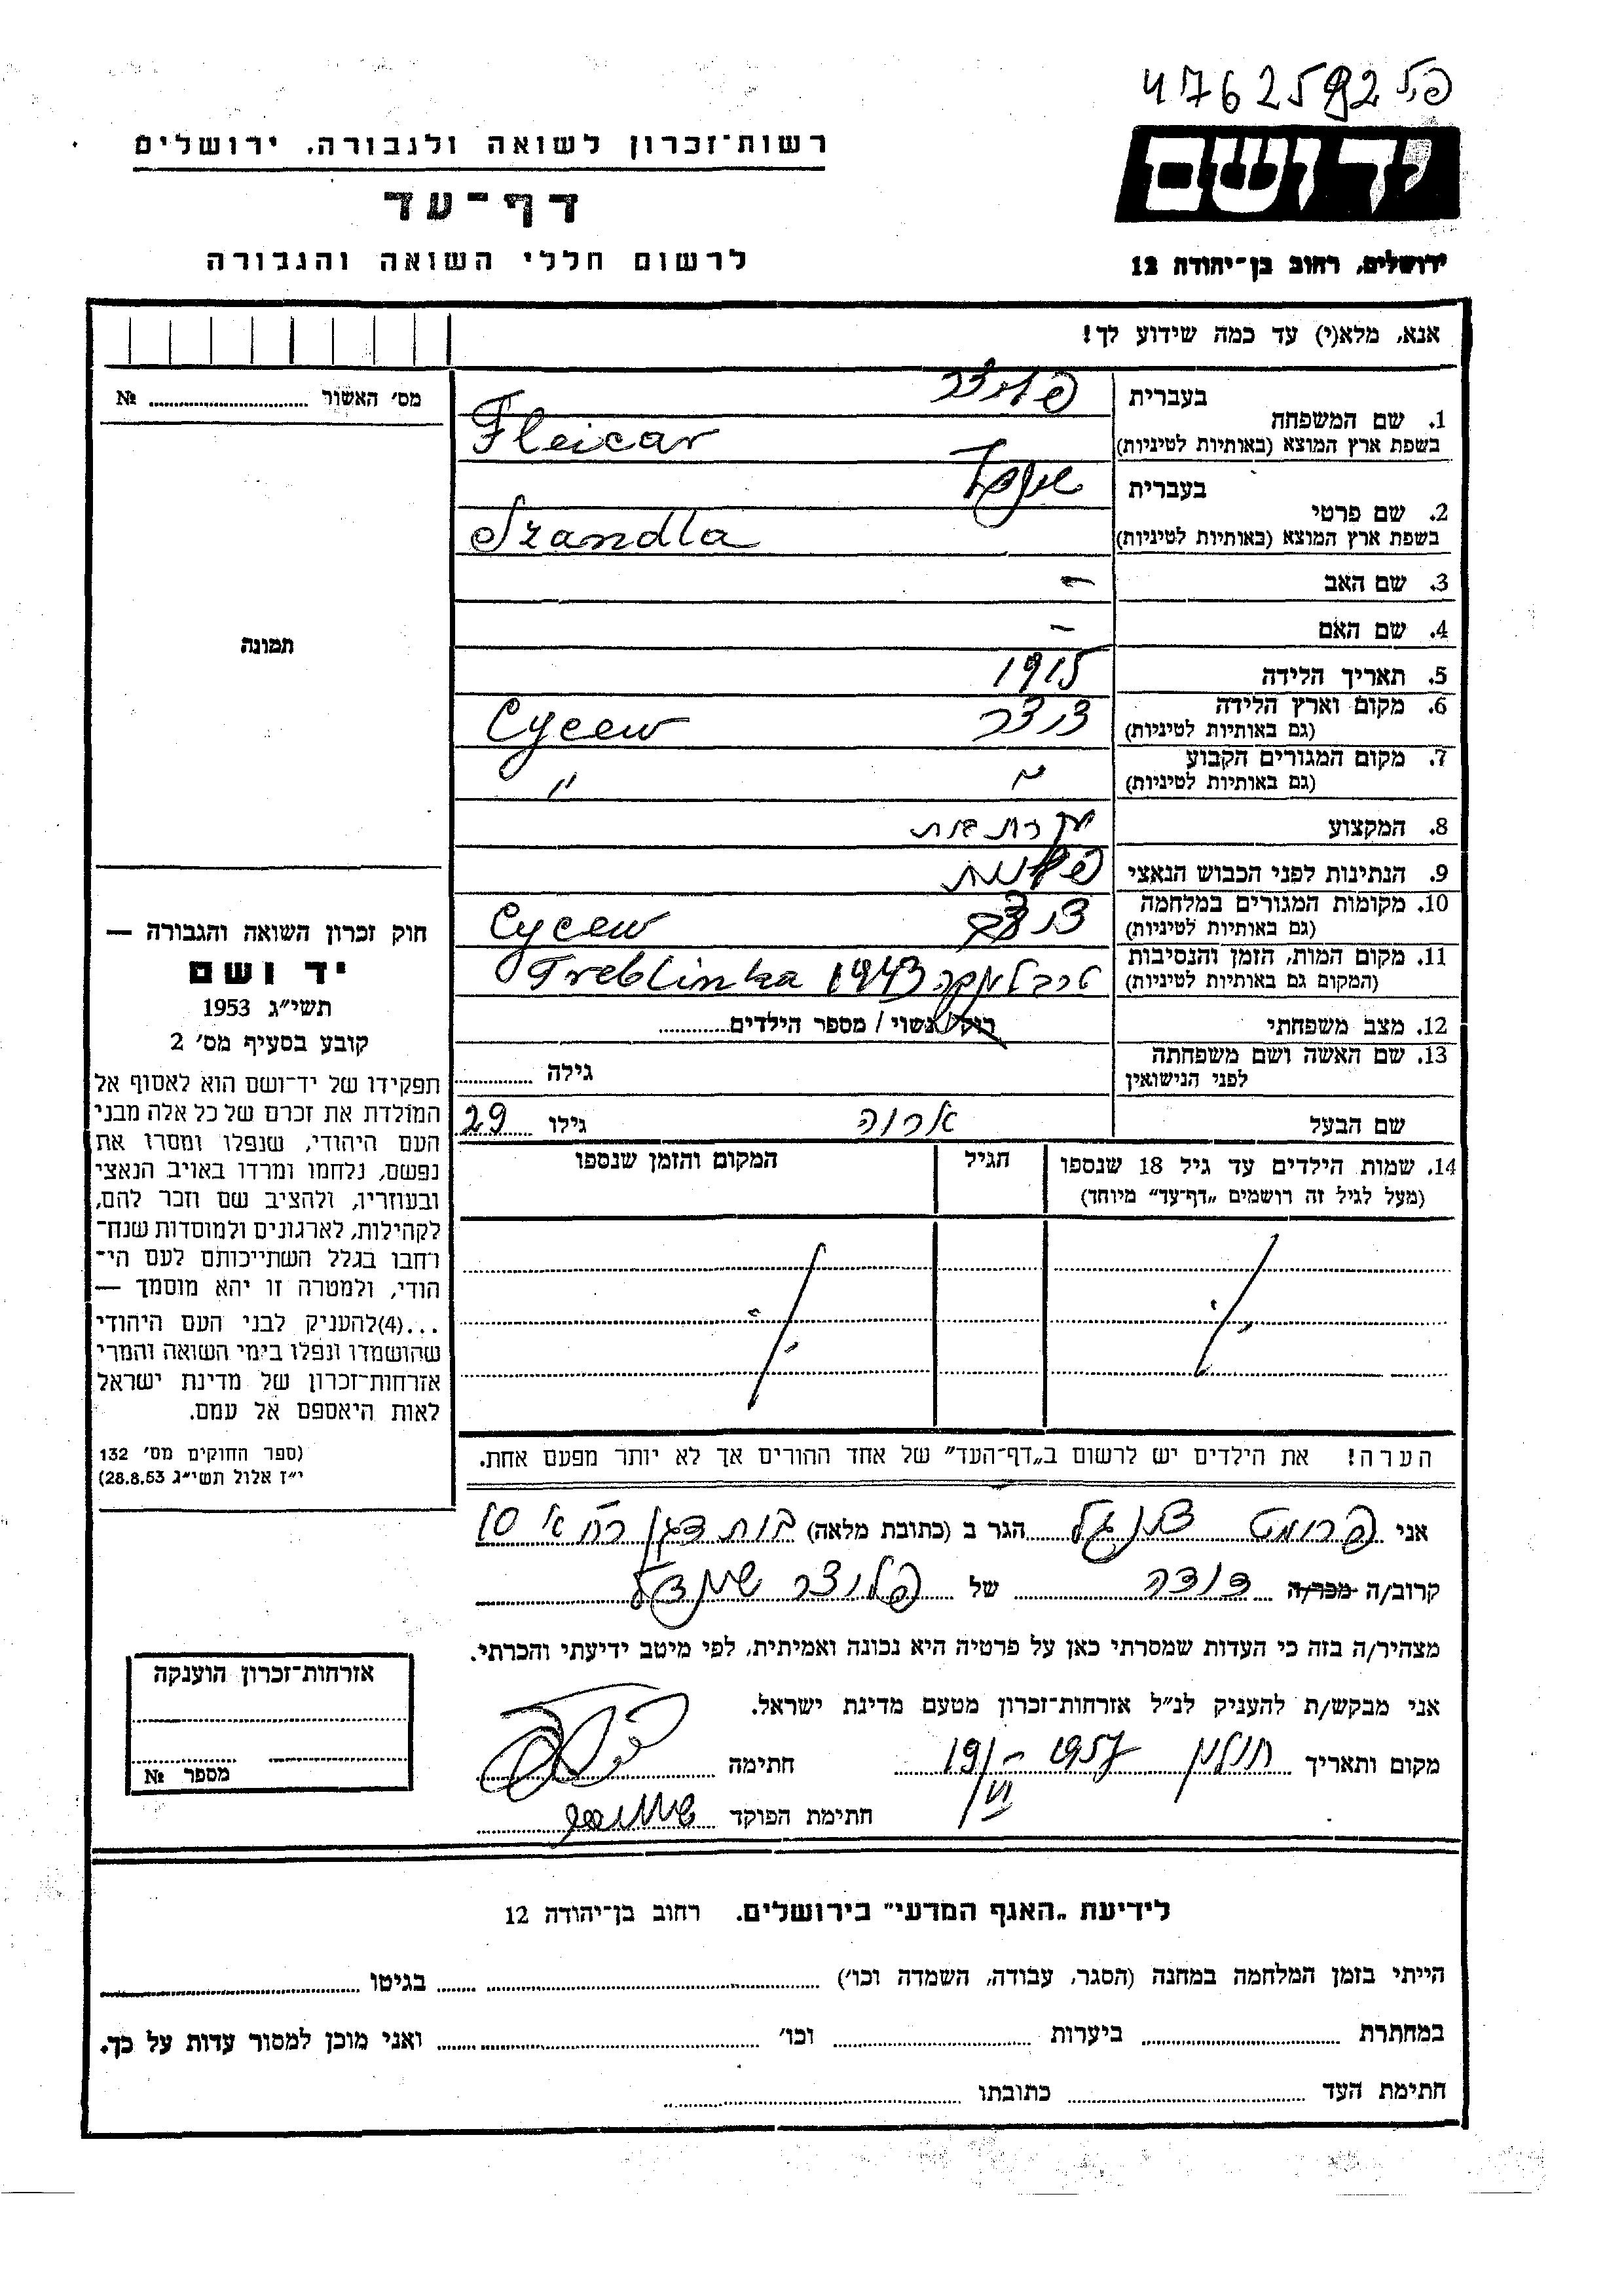 רשות־זכרון לשואה ולגבורה, ירושלים
דף־עד
לרשום חללי השואה והגבורה
יד ושם
ירושלים, רחוב בן־יהודה 12
אנא, מלא(י) עד כמה שידוע לך!
מס׳ האשור № ........
תמונה
1. שם המשפחה
בעברית
בשפת ארץ המוצא (באותיות לטיניות) Fleicar
2. שם פרטי
בעברית
בשפת ארץ המוצא (באותיות לטיניות) Szandla
3. שם האב –
4. שם האם –
5. תאריך הלידה 1915
6. מקום וארץ הלידה
(גם באותיות לטיניות) Cycew
7. מקום המגורים הקבוע
(גם באותיות לטיניות) "
8. המקצוע
9. הנתינות לפני הכבוש הנאצי
10. מקומות המגורים במלחמה
(גם באותיות לטיניות) Cycew
11. מקום המות, הזמן והנסיבות
(המקום גם באותיות לטיניות) טרבלינקה 1943 Treblinka
12. מצב משפחתי רוק/נשוי / מספר הילדים........
13. שם האשה ושם משפחתה
לפני הנישואין גילה ........
שם הבעל גילו 29
14. שמות הילדים עד גיל 18 שנספו הגיל המקום והזמן שנספו
(מעל לגיל זה רושמים „דף־עד" מיוחד)
הערה! את הילדים יש לרשום ב„דף־העד" של אחד ההורים אך לא יותר מפעם אחת.
חוק זכרון השואה והגבורה —
יד ושם
תשי״ג 1953
קובע בסעיף מס׳ 2
תפקידו של יד־ושם הוא לאסוף אל
המולדת את זכרם של כל אלה מבני
העם היהודי, שנפלו ומסרו את
נפשם, נלחמו ומרדו באויב הנאצי
ובעוזריו, ולהציב שם וזכר להם,
לקהילות, לארגונים ולמוסדות שנח־
רבו בגלל השתייכותם לעם הי־
הודי, ולמטרה זו יהא מוסמך —
...(4)להעניק לבני העם היהודי
שהושמדו ונפלו בימי השואה והמרי
אזרחות־זכרון של מדינת ישראל
לאות היאספם אל עמם.
(ספר החוקים מס׳ 132
י״ז אלול תשי״ג 28.8.53)
אני הגר ב (כתובת מלאה) בית דגן 10
קרוב/ה מכר/ה דודה של
מצהיר/ה בזה כי העדות שמסרתי כאן על פרטיה היא נכונה ואמיתית, לפי מיטב ידיעתי והכרתי.
אני מבקש/ת להעניק לנ״ל אזרחות־זכרון מטעם מדינת ישראל.
מקום ותאריך חולון 1957 חתימה
חתימת הפוקד
אזרחות־זכרון הוענקה
מספר №
לידיעת „האגף המדעי" בירושלים. רחוב בן־יהודה 12
הייתי בזמן המלחמה במחנה (הסגר, עבודה, השמדה וכו׳) ........ בגיטו ........
במחתרת ........ ביערות ........ וכו׳ ........ ואני מוכן למסור עדות על כך.
חתימת העד ........ כתובתו ........